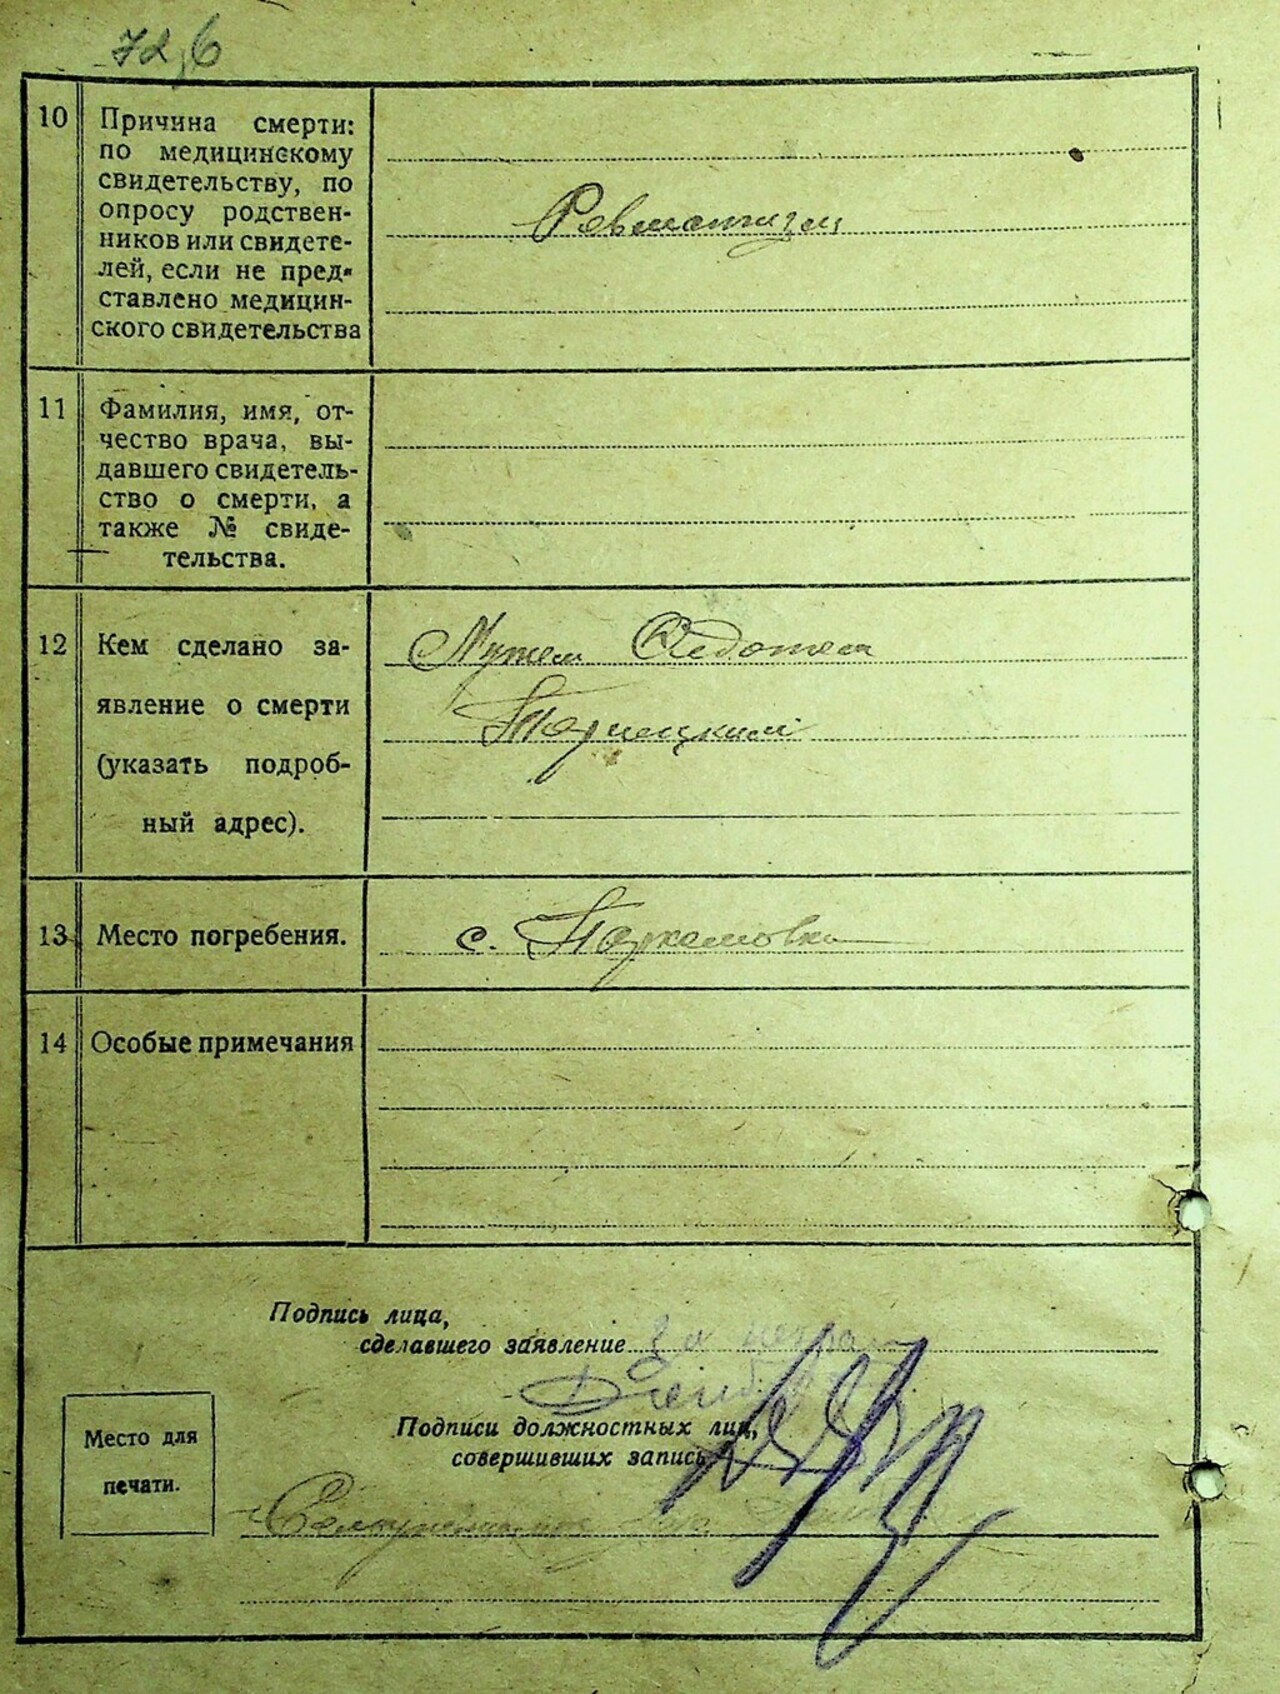 10 Причина смерти:
по медицинскому
свидетельству, по
опросу родствен-
ников или свидете-
лей, если не пред-
ставлено медицин-
ского свидетельства
Ревматизм
11 Фамилия, имя, от-
чество врача, вы-
давшего свидетель-
ство о смерти, а
также № свиде-
тельства.
12 Кем сделано за-
явление о смерти
(указать подроб-
ный адрес).
Мужем Федотем
13 Место погребения.
с. Пархомовка
14 Особые примечания
Подпись лица,
сделавшего заявление За неграм
Подписи должностных лиц,
совершивших запись
Место для
печати.